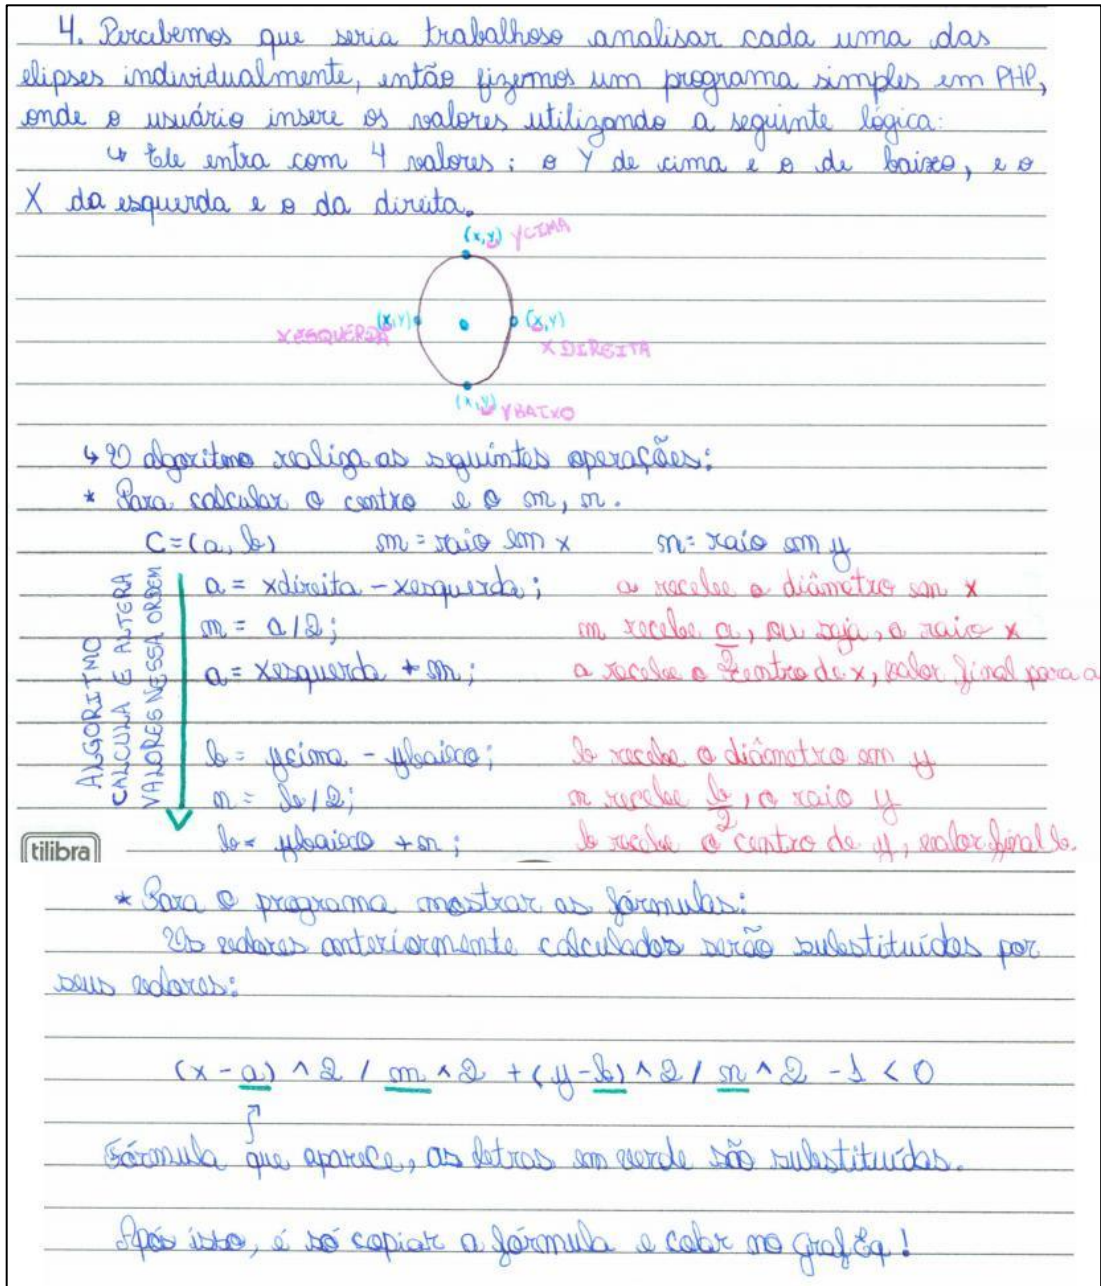 4. Percebemos que seria trabalhoso analisar cada uma das
elipses individualmente, então fizemos um programa simples em PHP,
onde o usuário insere os valores utilizando a seguinte lógica:
↳ Ele entra com 4 valores; o Y de cima e o de baixo, e o
X da esquerda e o da direita.
(x,y) YCIMA
(x,y) (x,y)
XESQUERDA X DIREITA
(x,y) YBAIXO
↳ O algoritmo realiza as seguintes operações:
* Para calcular o centro e o m, n.
C=(a, b) m = raio em x n= raio em y
ALGORITMO
CALCULA E ALTERA
VALORES NESSA ORDEM
a = xdireita - xesquerda; a recebe o diâmetro em x
m = a/2; m recebe a/2, ou seja, o raio x
a = xesquerda + m; a recebe o centro de x, valor final para a
b = ycima - ybaixo; b recebe o diâmetro em y
n = b/2; n recebe b/2, o raio y
b = ybaixo + n; b recebe o centro de y, valor final b.
tilibra
* Para o programa mostrar as fórmulas:
Os valores anteriormente calculados serão substituídos por
seus valores:
(x-a)^2 / m^2 + (y-b)^2 / n^2 -1 < 0
Fórmula que aparece, as letras em verde são substituídas.
Após isso, é só copiar a fórmula e colar no GrafEq!